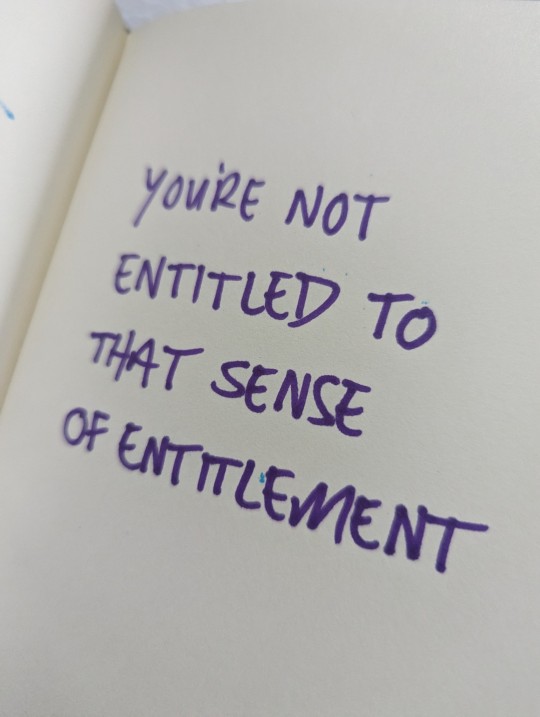 YOU'RE NOT
ENTITLED TO
THAT SENSE
OF ENTITLEMENT